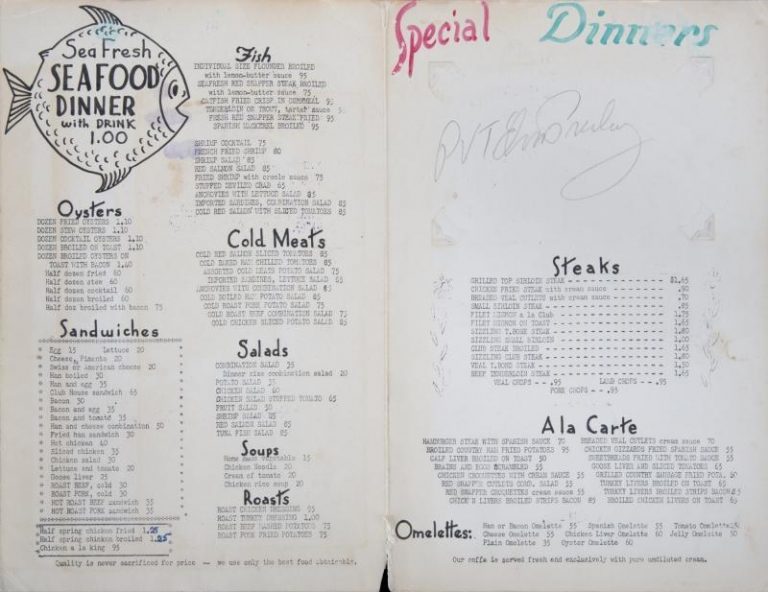 Sea Fresh
SEAFOOD
DINNER
with DRINK
1.00
Oysters
DOZEN FRIED OYSTERS 1.10
DOZEN STEW OYSTERS 1.10
DOZEN COCKTAIL OYSTERS 1.10
DOZEN BROILED ON TOAST 1.10
DOZEN BROILED OYSTERS ON
TOAST WITH BACON 1.40
Half dozen fried 60
Half dozen stew 60
Half dozen cocktail 60
Half dozen broiled 60
Half doz broiled with bacon 75
Sandwiches
Egg 15 Lettuce 20
Cheese, Pimento 20
Swiss or american cheese 20
Ham boiled 30
Ham and egg 35
Club House sandwich 65
Bacon 30
Bacon and egg 35
Bacon and tomato 35
Ham and cheese combination 50
Fried ham sandwich 30
Hot chicken 40
Sliced chicken 35
Chicken salad 30
Lettuce and tomato 20
Goose liver 25
ROAST BEEF, cold 30
ROAST PORK, cold 30
HOT ROAST BEEF sandwich 35
HOT ROAST PORK sandwich 35
Half spring chicken fried 1.25
Half spring chicken broiled 1.25
Chicken a la king 95
Fish
INDIVIDUAL SIZE FLOUNDER BROILED
with lemon-butter sauce 95
SEAFRESH RED SNAPPER STEAK BROILED
with lemon-butter sauce 75
CATFISH FRIED CRISP IN CORNMEAL 95
TENDERLOIN OF TROUT, tartar sauce
FRESH RED SNAPPER STEAK FRIED 95
SPANISH MACKEREL BROILED 95
SHRIMP COCKTAIL 75
FRENCH FRIED SHRIMP 80
SHRIMP SALAD 85
RED SALMON SALAD 85
FRIED SHRIMP with creole sauce 75
STUFFED DEVILED CRAB 65
ANCHOVIES WITH LETTUCE SALAD 65
IMPORTED SARDINES, COMBINATION SALAD 85
COLD RED SALMON WITH SLICED TOMATOES 85
Cold Meats
COLD RED SALMON SLICED TOMATOES 85
COLD BAKED HAM CHILLED TOMATOES 85
ASSORTED COLD MEATS POTATO SALAD 75
IMPORTED SARDINES, LETTUCE SALAD 65
ANCHOVIES WITH COMBINATION SALAD 85
COLD BOILED HAM POTATO SALAD 85
COLD ROAST PORK POTATO SALAD 75
COLD ROAST BEEF COMBINATION SALAD 75
COLD CHICKEN SLICED POTATO SALAD 85
Salads
COMBINATION SALAD 35
Dinner size combination salad 20
POTATO SALAD 35
CHICKEN SALAD 60
CHICKEN SALAD STUFFED TOMATO 65
FRUIT SALAD 50
SHRIMP SALAD 85
RED SALMON SALAD 85
TUNA FISH SALAD 85
Soups
Home Made Vegetable 15
Chicken Noodle 20
Cream of tomato 20
Chicken rice soup 20
Roasts
ROAST CHICKEN DRESSING 95
ROAST TURKEY DRESSING 1.00
ROAST BEEF MASHED POTATOES 75
ROAST PORK FRIED POTATOES 75
Quality is never sacrificed for price — we use only the best food obtainable.
Special Dinners
PVT Elvis Presley
Steaks
GRILLED TOP SIRLOIN STEAK $1.65
CHICKEN FRIED STEAK with cream sauce .90
BREADED VEAL CUTLETS with cream sauce .90
SMALL SIRLOIN STEAK .95
FILET MIGNON a la Club 1.75
FILET MIGNON ON TOAST 1.65
SIZZLING T.BONE STEAK 1.80
SIZZLING SMALL SIRLOIN 1.00
CLUB STEAK BROILED 1.65
SIZZLING CLUB STEAK 1.80
VEAL T.BONE STEAK 1.50
BEEF TENDERLOIN STEAK 1.65
VEAL CHOPS .95 LAMB CHOPS .95
PORK CHOPS .95
A la Carte
HAMBURGER STEAK WITH SPANISH SAUCE 70 BREADED VEAL CUTLETS cream sauce 70
BROILED COUNTRY HAM FRIED POTATOES 95 CHICKEN GIZZARDS FRIED SPANISH SAUCE 55
CALF LIVER BROILED ON TOAST 50 SWEETBREADS FRIED WITH TOMATO SAUCE 55
BRAINS AND EGGS SCRAMBLED 55 GOOSE LIVER AND SLICED TOMATOES 65
CHICKEN CROQUETTES WITH CREAM SAUCE 55 GRILLED COUNTRY SAUSAGE FRIED POTA. 50
RED SNAPPER CUTLETS COMB. SALAD 55 TURKEY LIVERS BROILED ON TOAST 65
RED SNAPPER CROQUETTES cream sauce 55 TURKEY LIVERS BROILED STRIPS BACON
CHICKEN LIVERS BROILED STRIPS BACON 85 BROILED CHICKEN LIVERS ON TOAST 65
Omelettes:
Ham or Bacon Omelette 55 Spanish Omelette 55 Tomato Omelette
Cheese Omelette 55 Chicken Liver Omelette 60 Jelly Omelette 50
Plain Omelette 35 Oyster Omelette 60
Our coffe is served fresh and exclusively with pure undiluted cream.